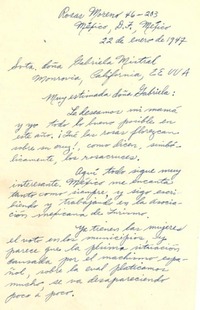 Rosas Moreno 46-203
México, D.F., México
22 de enero de 1947
Srta. doña Gabriela Mistral
Monrovia, California, EE UU A
Muy estimada doña Gabriela:
Le deseamos mi mamá
y yo todo lo bueno posible en
este año. ¡Qué las rosas florezcan
sobre su cruz!, como dicen, simbó-
licamente, los rosacruces.
Aquí todo sigue muy
interesante. México me encanta
tanto como siempre, y sigo escri-
biendo y trabajando en la Asocia-
ción Mexicana de Turismo.
Ya tienen las mujeres
el voto en los municipios y
parece que la pésima situación
causada por el machismo espa-
ñol, sobre la cual platicamos
mucho, se va desapareciendo
poco a poco.